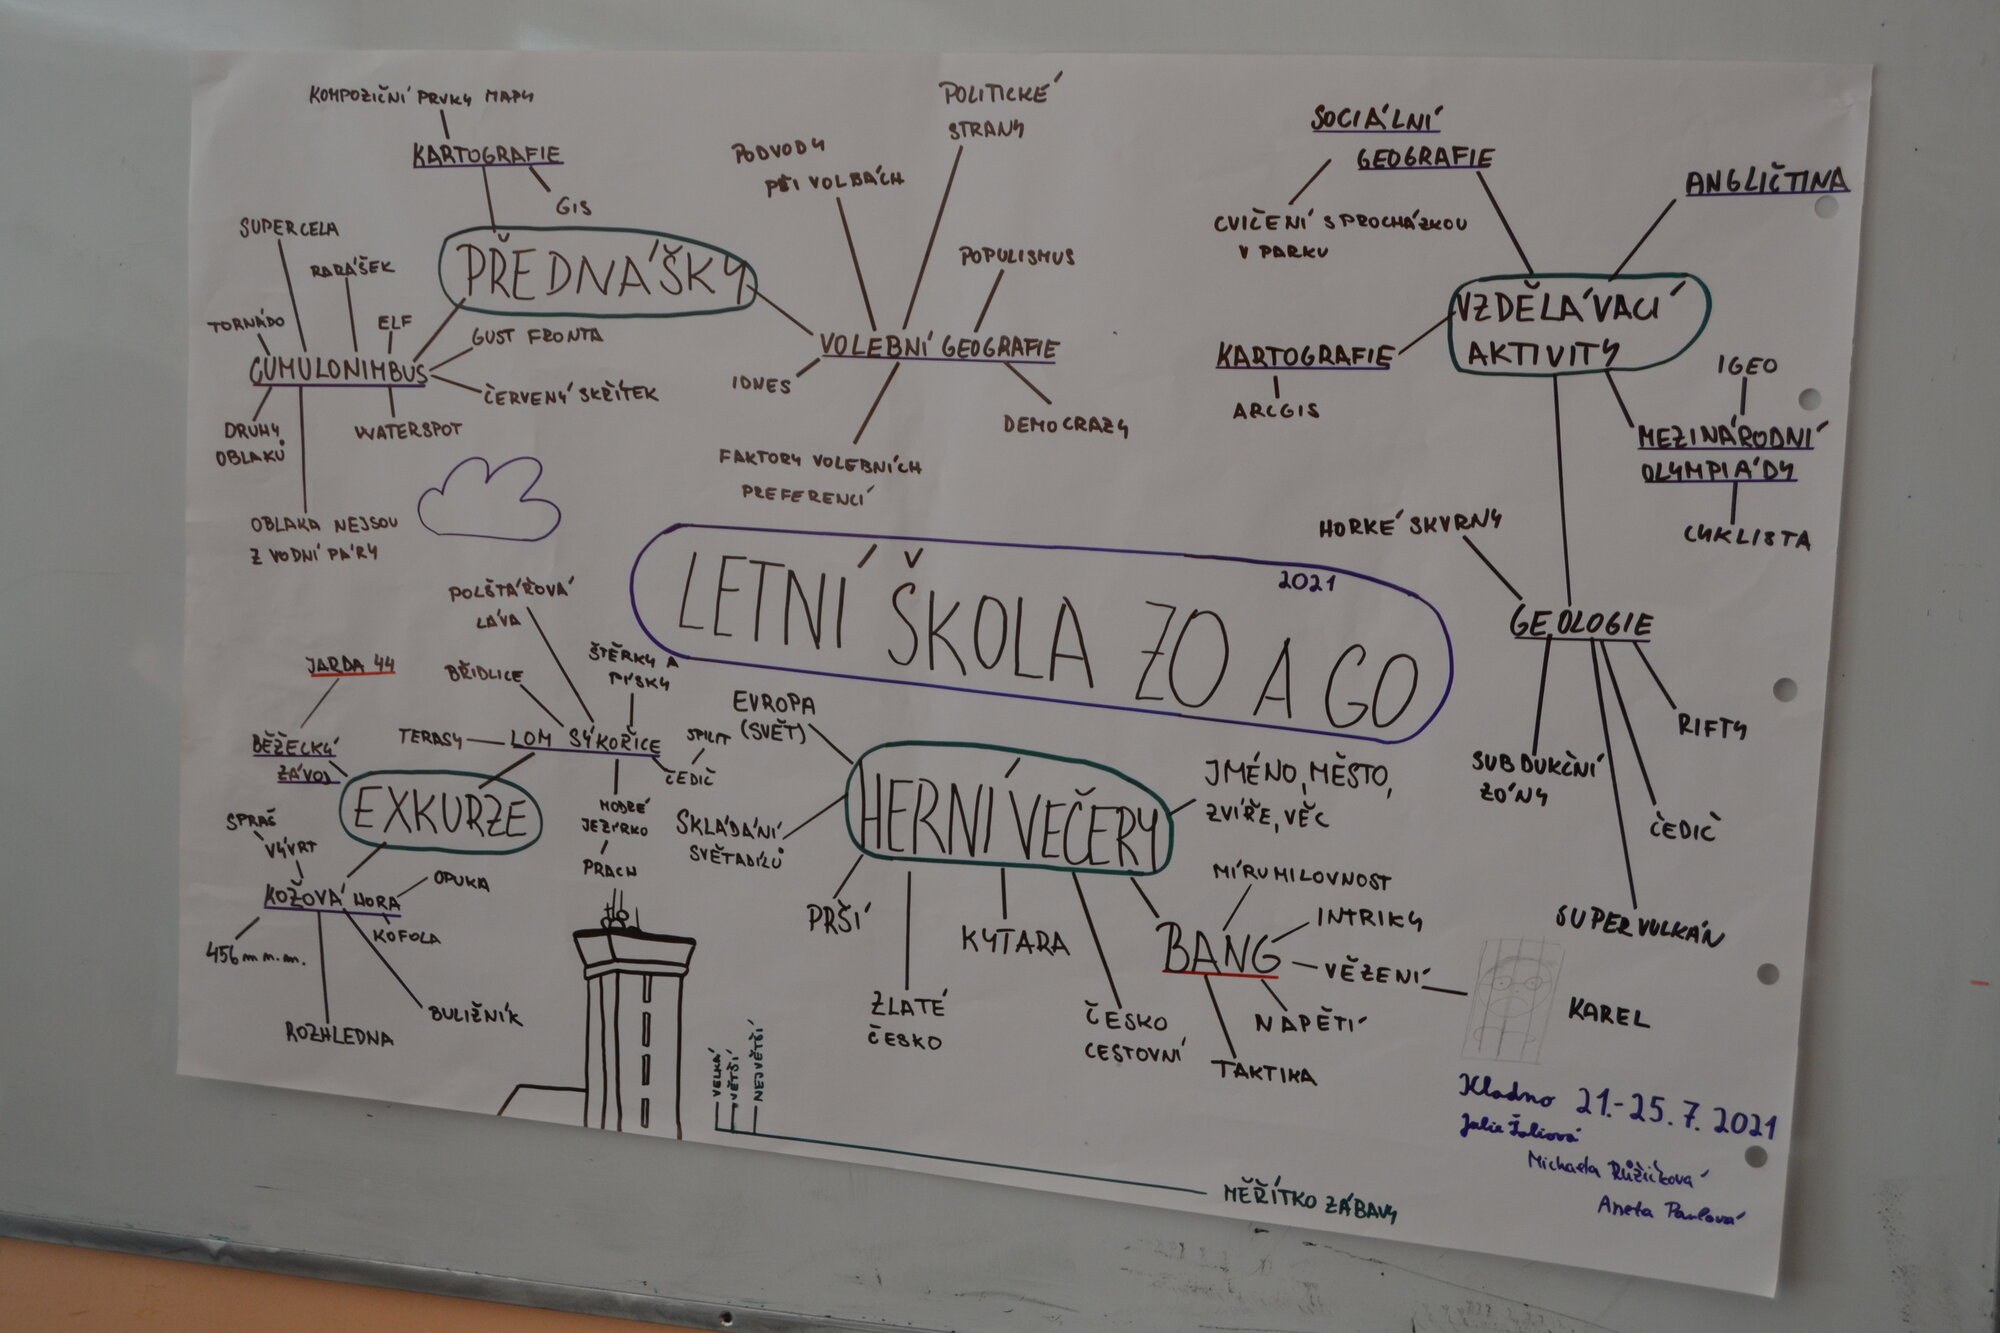 KOMPOZIČNÍ PRVKY MAPY
KARTOGRAFIE
GIS
PŘEDNÁŠKY
SUPERCELA
RARÁŠEK
TORNÁDO
ELF
GUST FRONTA
CUMULONIMBUS
ČERVENÝ SKŘÍTEK
DRUHY
OBLAKŮ
WATERSPOT
OBLAKA NEJSOU
Z VODNÍ PÁRY
PODVODY
PŘI VOLBÁCH
POLITICKÉ
STRANY
POPULISMUS
VOLEBNÍ GEOGRAFIE
IDNES
DEMOCRAZY
FAKTORY VOLEBNÍCH
PREFERENCÍ
SOCIÁLNÍ
GEOGRAFIE
CVIČENÍ S PROCHÁZKOU
V PARKU
ANGLIČTINA
VZDĚLÁVACÍ
AKTIVITY
KARTOGRAFIE
ARCGIS
IGEO
MEZINÁRODNÍ
OLYMPIÁDY
CYKLISTA
HORKÉ SKVRNY
GEOLOGIE
RIFTY
SUBDUKČNÍ
ZÓNY
ČEDIČ
SUPERVULKÁN
LETNÍ ŠKOLA ZO A GO
2021
POLŠTÁŘOVÁ
LÁVA
JARDA 44
BŘIDLICE
ŠTĚRKY A
PÍSKY
BĚŽECKÝ
ZÁVOD
TERASY
LOM SÝKOŘICE
SPILIT
ČEDIČ
EXKURZE
MODRÉ
JEZÍRKO
PRACH
SPRAŠ
VÝVRT
KOŽOVÁ HORA
OPUKA
KOFOLA
456 m n.m.
ROZHLEDNA
BULIŽNÍK
EVROPA
(SVĚT)
HERNÍ VEČERY
JMÉNO, MĚSTO,
ZVÍŘE, VĚC
SKLÁDÁNÍ
SVĚTADÍLŮ
PRŠÍ
ZLATÉ
ČESKO
KYTARA
ČESKO
CESTOVNÍ
BANG
MÍRUMILOVNOST
INTRIKY
VĚZENÍ
KAREL
NAPĚTÍ
TAKTIKA
VELKÁ
VĚTŠÍ
NEJVĚTŠÍ
MĚŘÍTKO ZÁBAVY
Kladno 21.-25.7.2021
Julie
Michaela Růžičková
Aneta Pavlová